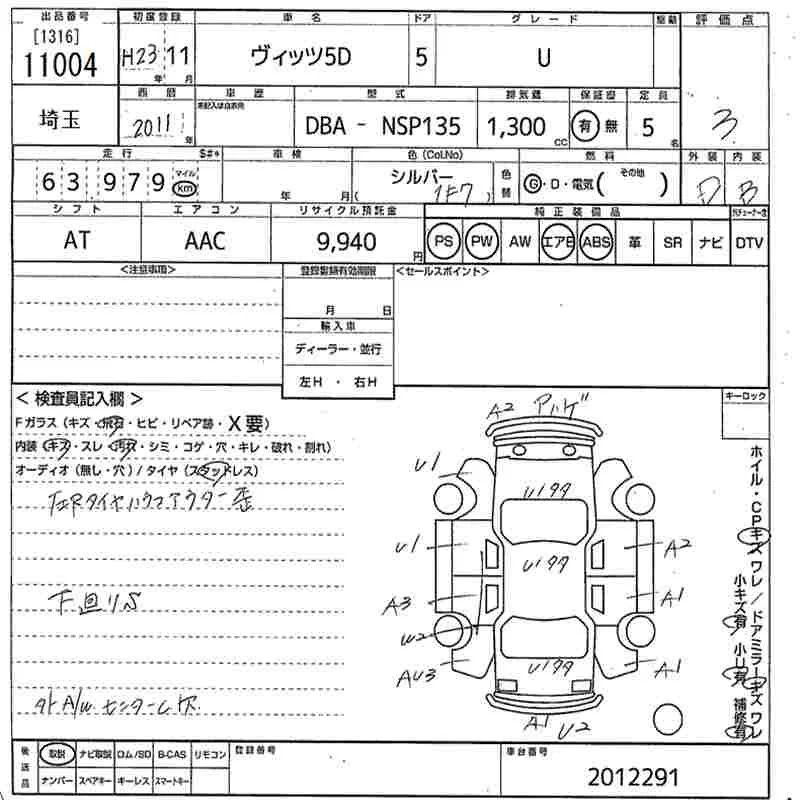 出品番号 初度登録 車名 ドア グレード 駆動 評価点
[1316]
11004 H23年 11月 ヴィッツ5D 5 U
西暦 車歴 型式 排気量 保証書 定員
未記入は自家用
埼玉 2011年 DBA - NSP135 1,300cc 有 無 5名 3
走行 $#* 車検 色(Col.No) 燃料 外装 内装
63979 マイル km 年 月 シルバー (1F7) 色替 G・D・電気(その他) D B
シフト エアコン リサイクル預託金 純正装備品
AT AAC 9,940円 PS PW AW エアB ABS 革 SR ナビ DTV
<注意事項> 登録書類有効期限 <セールスポイント>
月 日
輸入車
ディーラー・並行
左H・右H
<検査員記入欄> キーロック
Fガラス(キズ・飛石・ヒビ・リペア跡・X要)
内装(キズ・スレ・汚れ・シミ・コゲ・穴・キレ・破れ・割れ)
オーディオ(無し・穴)/タイヤ(スタッドレス)
下回りS
A2 アハゲ
U1
U1
A3
W2
AU3
A2
A1
A1
A1 U2
ホイル・CPキズワレ/ドアミラーキズワレ
小キズ有 小U有 補修有
後送品 取説 ナビ取説 ロム/SD B-CAS リモコン 登録番号 車台番号
ナンバー スペアキー キーレス スマートキー 2012291